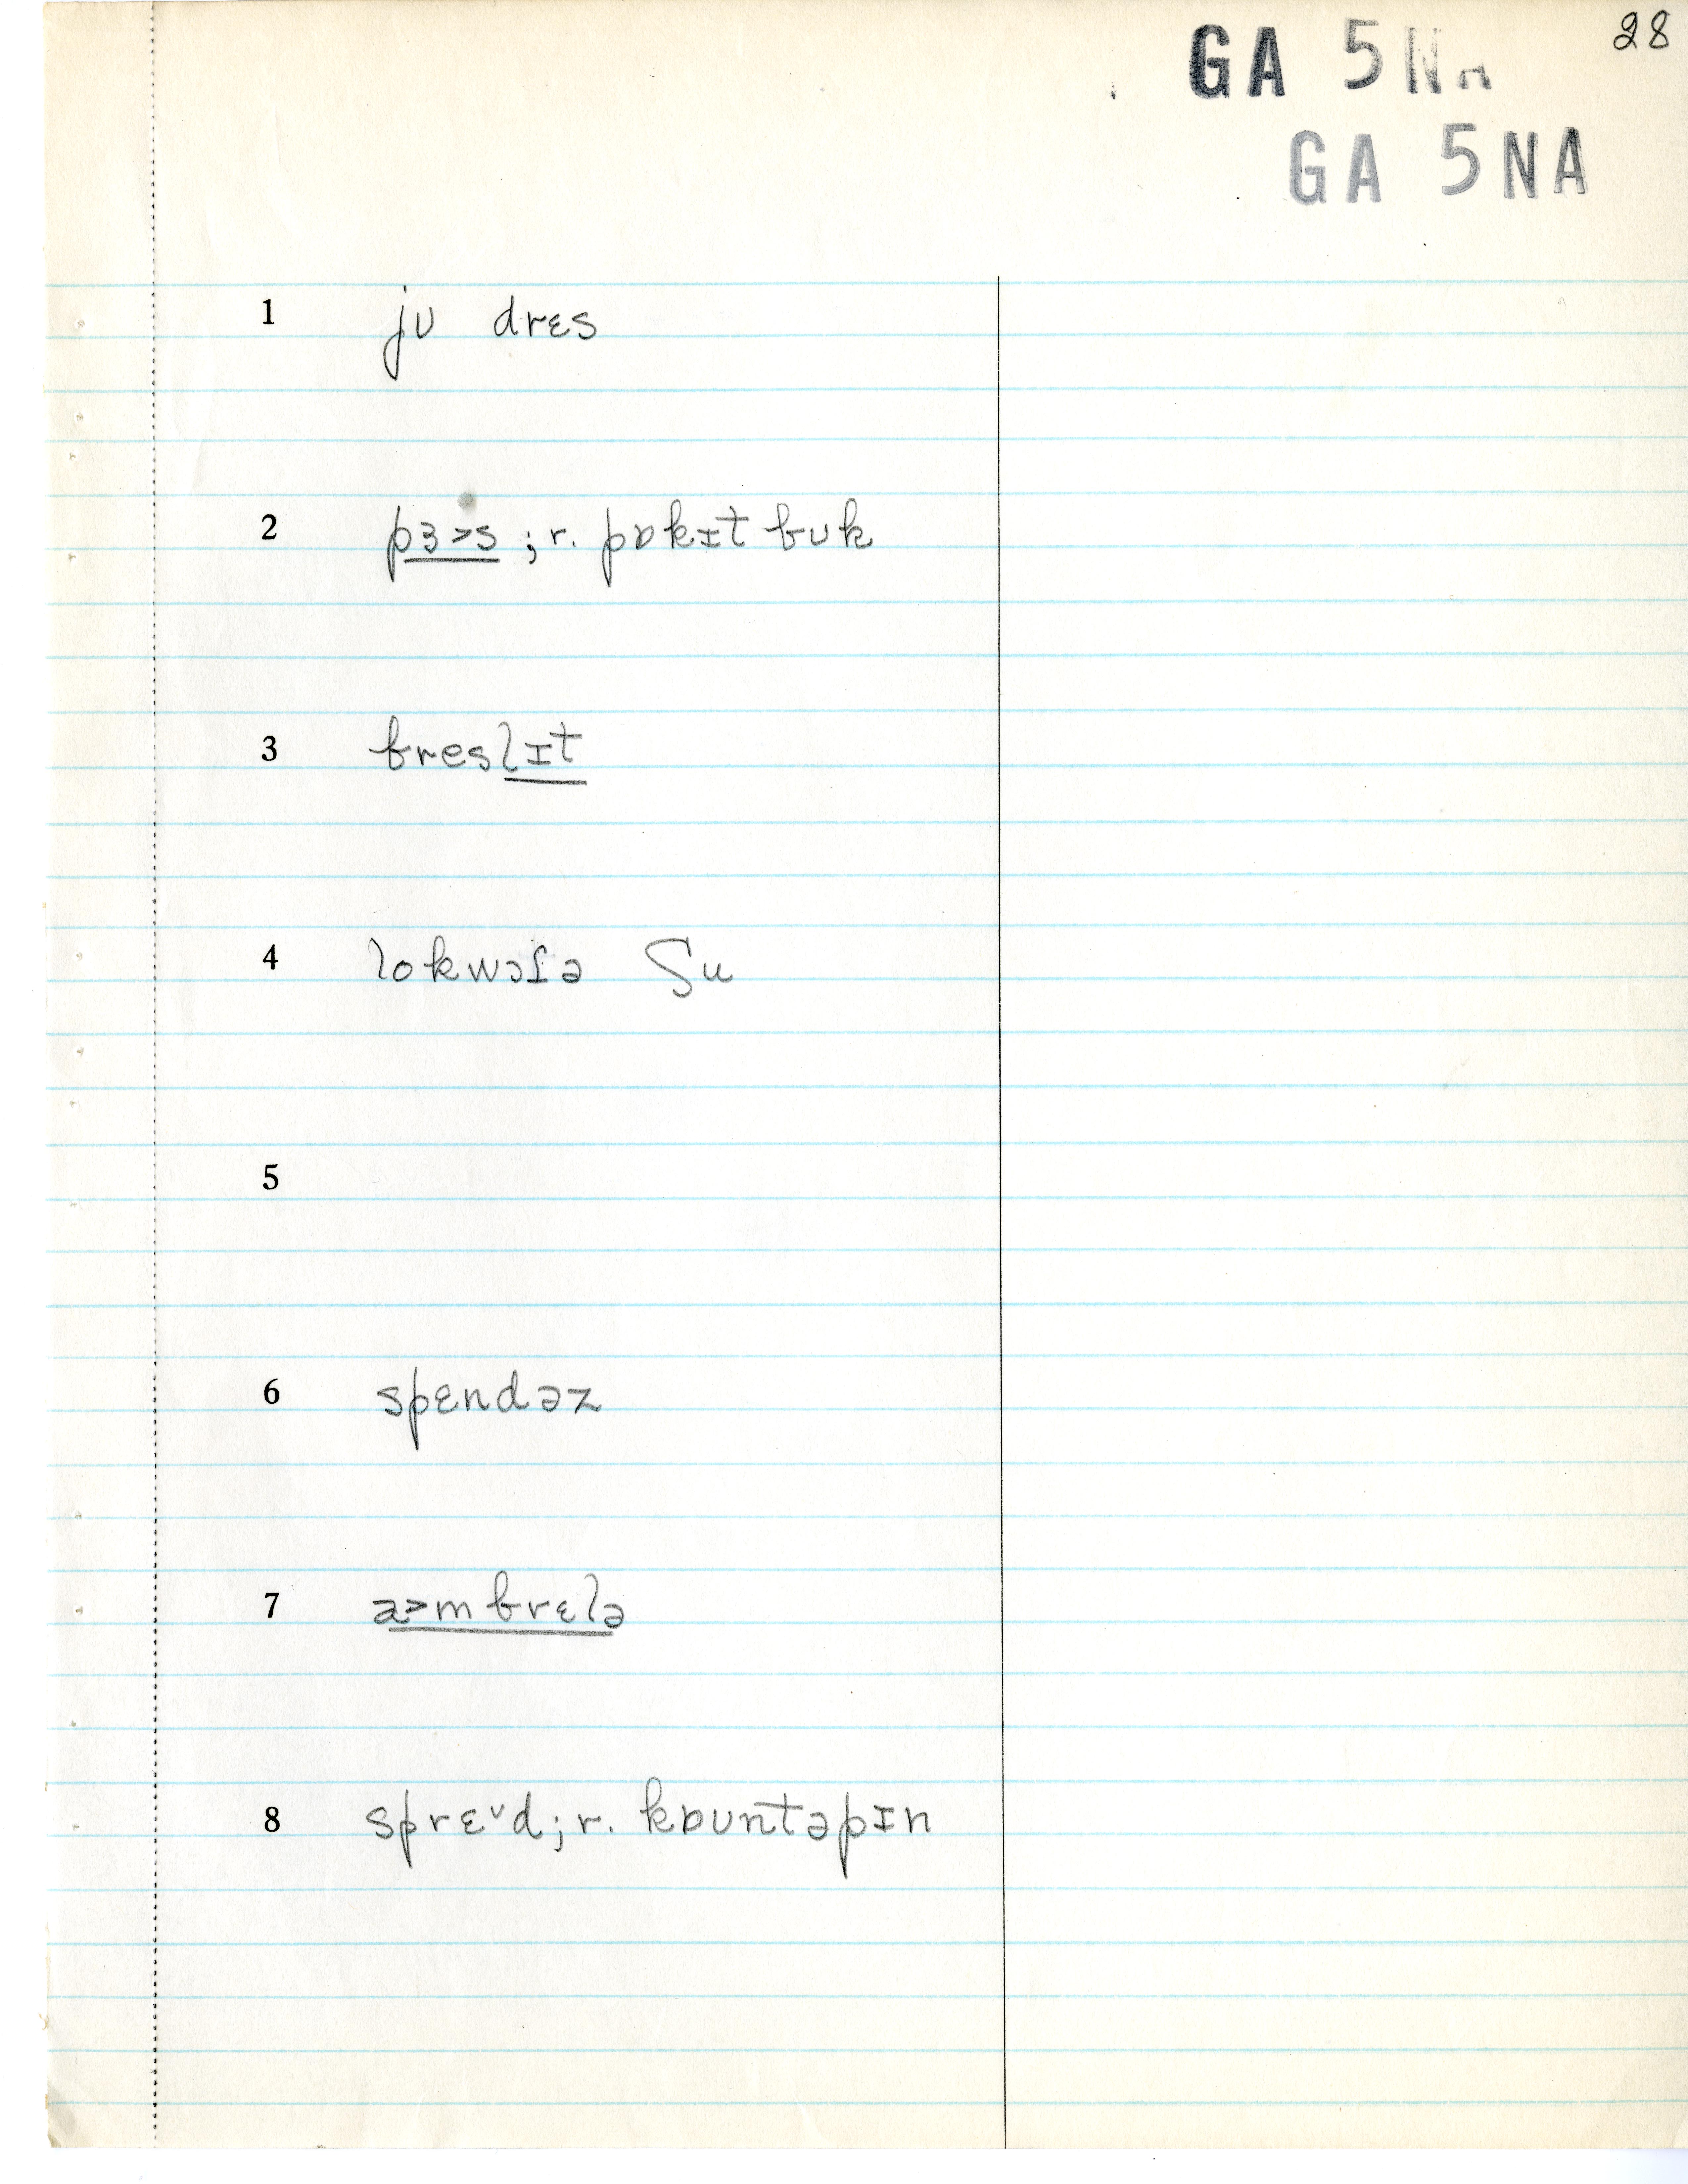 28
GA 5NA
GA 5NA
1 jʊ drɛs
2 pɜ>s ; r. pɒkɪt bʊk
3 breslɪt
4 lokwɔfə ʃu
5
6 spɛndəz
7 a>mbrɛlə
8 sprɛᵛd ; r. kɒʊntəpɪn